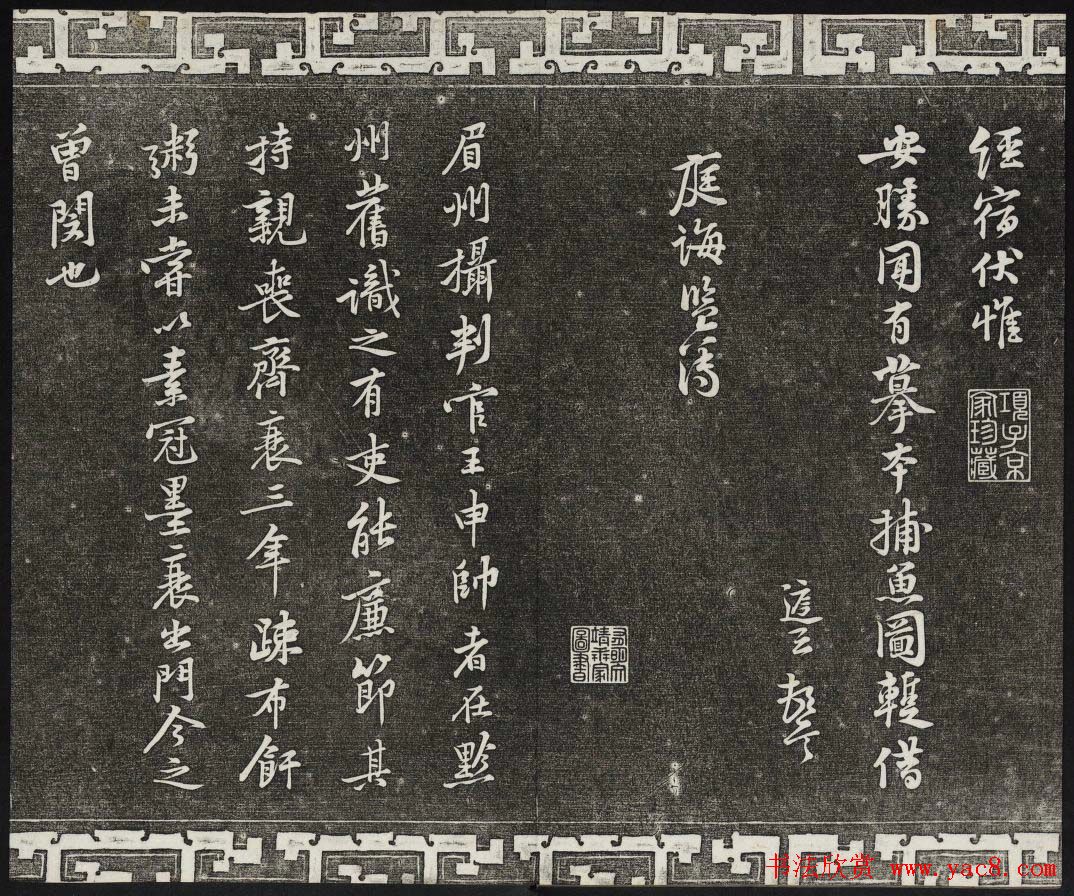 經宿伏惟
項子京家珍藏
安勝聞有摹本捕魚圖輙借
庭誨監簿
眉州攝判官王申帥者在黔
州舊識之有吏能廉節其
持親喪齊衰三年疎布飦
粥未甞以素冠墨衰出門今之
曾閔也
书法欣赏 www.yac8.com